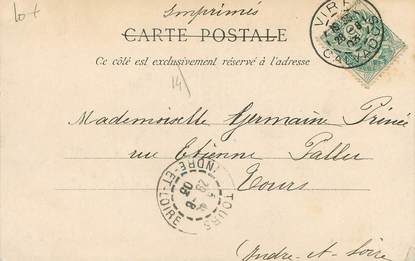 lot
Imprimés
CARTE POSTALE
Ce côté est exclusivement réservé à l'adresse
14
VIRE
CALVADOS
Mademoiselle Germain Prince
rue Etienne Pallu
Tours
Indre-et-Loire
TOURS
INDRE-ET-LOIRE